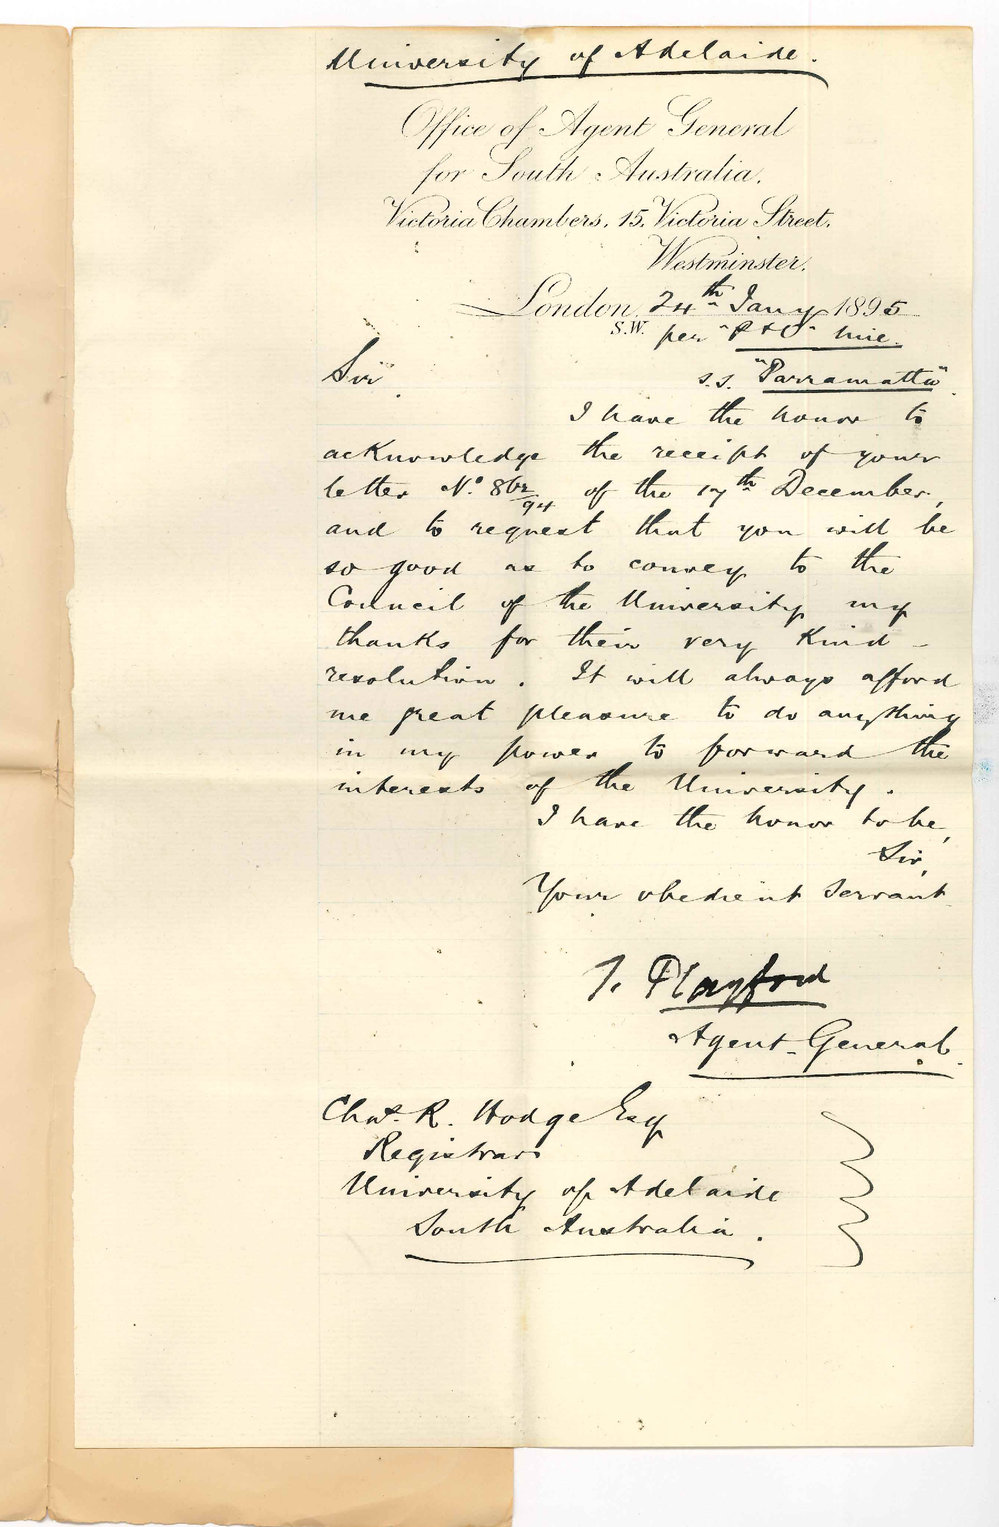 University of Adelaide.
Office of Agent General
for South Australia.
Victoria Chambers, 15, Victoria Street,
Westminster,
London, 24th Jany 1895
S.W.
per "P & O" line.
Sir
s.s. "Parramatta".
I have the honor to
acknowledge the receipt of your
letter No. 862/94 of the 17th December,
and to request that you will be
so good as to convey to the
Council of the University my
thanks for their very kind
resolution. It will always afford
me great pleasure to do anything
in my power to forward the
interests of the University.
I have the honor to be,
Sir,
Your obedient Servant
T. Playford
Agent-General.
Chas. R. Hodge Esq
Registrar
University of Adelaide
South Australia.